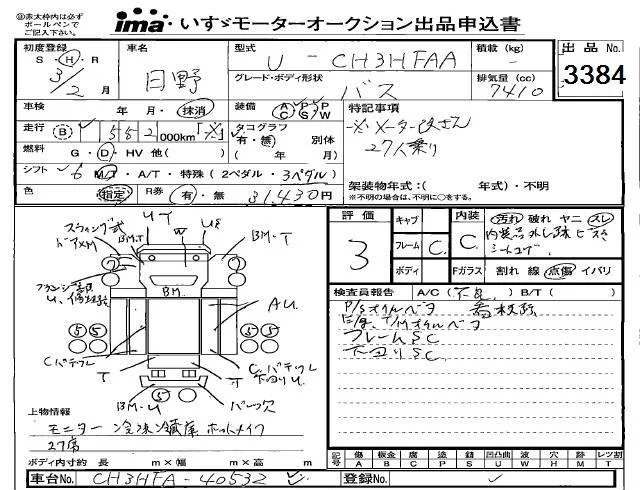 ㊟赤太枠内は必ず
ボールペンで
ご記入下さい。
ima いすゞモーターオークション出品申込書
初度登録 車名 型式 積載 (kg) 出品No.
S・H・R 日野 U-CH3HFAA -
3/2月 グレード・ボディ形状 バス 排気量(cc) 7410 3384
車検 年 月・抹消 装備 A/C P/S P/W 特記事項
走行 B 552 000km ※ タコグラフ 有・無 別体 ※メーター改ざん
燃料 G・D・HV 他( ) ( 年 月) 27人乗り
シフト 6 M/T・A/T・特殊(2ペダル・3ペダル)
架装物年式:( 年式)・不明
色 指定 R券 有・無 31,430円 ※不明の場合は、不明に○をする。
評価 3
キャブ
フレーム C
ボディ
内装 C 汚れ 破れ ヤニ スレ
内装品外し跡ビス穴
Fガラス 割れ 線 点傷 イバリ
スウィング式
ドアXM
UT
US
BM.T
W
BM・T
BM.
AU.
⑤⑤
⑤⑤
T
T
下回りU.
BM・U
⑤
バンパー欠
検査員報告 A/C(不良) B/T( )
P/Sオイルベタ 看板跡
E/g、T/Mオイルベタ
フレームSC
下回りSC
上物情報
モニター 冷凍冷蔵庫 ホットメイク
27席
ボディ内寸約 長 m×幅 m×高 m
記号 傷 A 板金 B 腐 C 塗 P 錆 S 凹凸曲 U 波 W 穴 H 跡 M レツ割 T
車台No. CH3HFA-40532 登録No.